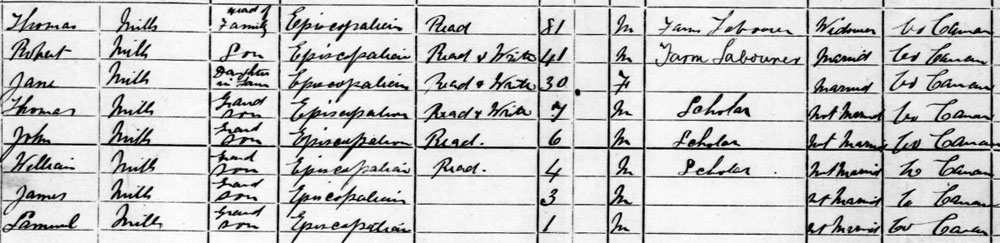 Thomas Mills Head of Family Episcopalian Read 81 M Farm Labourer Widower Co Cavan
Robert Mills Son Episcopalian Read & Write 41 M Farm Labourer Married Co Cavan
Jane Mills Daughter in Law Episcopalian Read & Write 30 F Married Co Cavan
Thomas Mills Grand Son Episcopalian Read & Write 7 M Scholar Not Married Co Cavan
John Mills Grand Son Episcopalian Read. 6 M Scholar Not Married Co Cavan
William Mills Grand Son Episcopalian Read. 4 M Scholar Not Married Co Cavan
James Mills Grand Son Episcopalian 3 M Not Married Co Cavan
Samuel Mills Grand Son Episcopalian 1 M Not Married Co Cavan